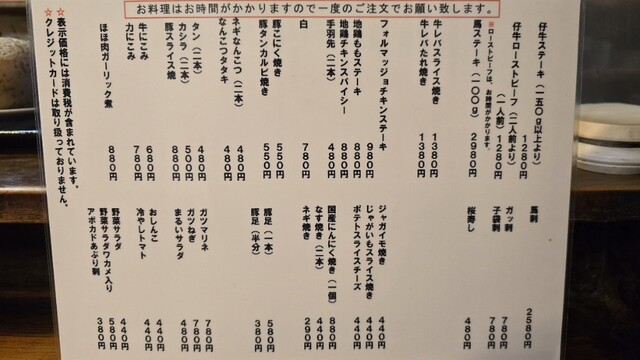 お料理はお時間がかかりますので一度のご注文でお願い致します。
仔牛ステーキ（一五〇ｇ以上より） 1280円
仔牛ローストビーフ（二人前より）（一人前） 1280円
※ローストビーフは、お時間がかかります。
馬ステーキ（一〇〇ｇ） 2980円
牛レバスライス焼き 1380円
牛レバたれ焼き 1380円
フォルマッジョチキンステーキ 980円
地鶏ももステーキ 880円
地鶏チキンスパイシー 880円
手羽先（二本） 480円
白 780円
豚こにく焼き 550円
豚タンカルビ焼き 550円
ネギなんこつ（二本） 480円
なんこつタタキ 480円
タン（二本） 480円
カシラ（二本） 500円
豚スライス焼 880円
牛にこみ 680円
力にこみ 780円
ほほ肉ガーリック煮 880円
☆表示価格には消費税が含まれています。
☆クレジットカードは取り扱っておりません。
馬刺 2580円
ガッ刺 780円
子袋刺 780円
桜寿し 480円
ジャガイモ焼き 440円
じゃがいもスライス焼き 440円
ポテトスライスチーズ 440円
国産にんにく焼き（一個） 880円
なす焼き（二本） 440円
ネギ焼き 290円
豚足（一本） 580円
豚足（半分） 380円
ガツマリネ 780円
ガツねぎ 780円
まるいサラダ 480円
おしんこ 440円
冷やしトマト 440円
野菜サラダ 440円
野菜サラダワカメ入り 580円
アボカドあぶり刺 380円